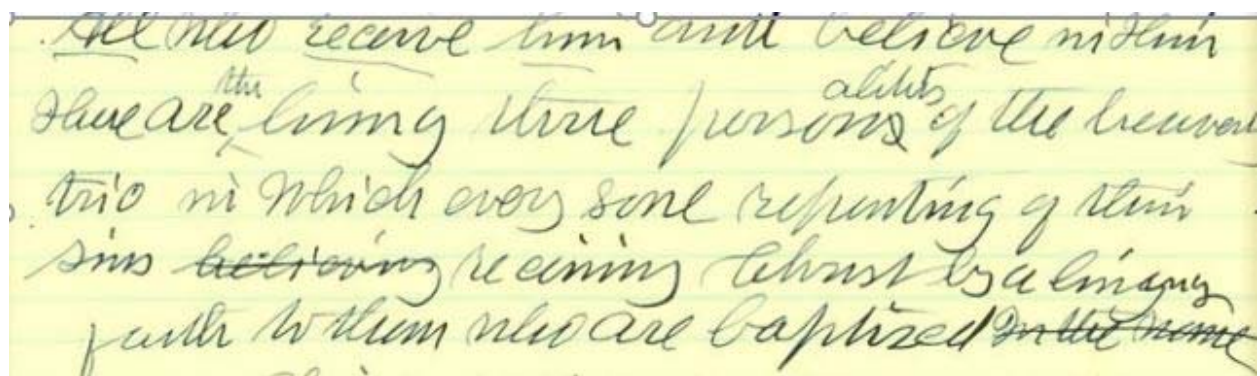 All who receive him and believe in Him
Here are the living three personalities of the heavenly
trio in which every soul repenting of their
sins believing receiving Christ by a living
faith to them who are baptized In the name